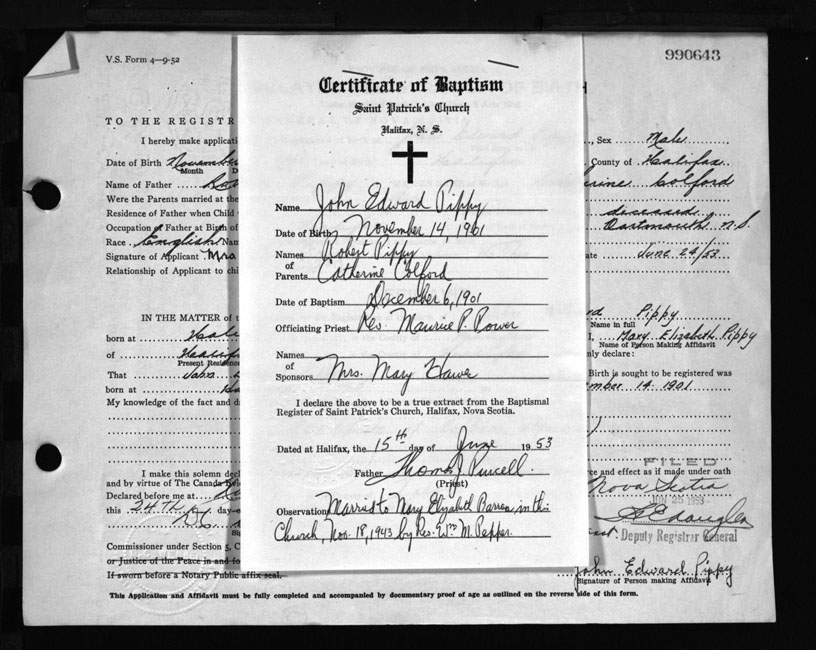 V.S. Form 4—9-52
990643
Certificate of Baptism
Saint Patrick's Church
Halifax, N. S.
Name John Edward Pippy
Date of Birth November 14, 1901
Names of Parents Robert Pippy
Catherine Colford
Date of Baptism December 6, 1901
Officiating Priest Rev. Maurice P. Power
Names of Sponsors Mrs. Mary
I declare the above to be a true extract from the Baptismal
Register of Saint Patrick's Church, Halifax, Nova Scotia.
Dated at Halifax, the 15th day of June 1953
Father Thomas J Purcell.
(Priest)
Observation Married to Mary Elizabeth in this
Church, Nov. 18, 1943 by Rev. Wm M. Pepper.
TO THE REGISTR
I hereby make applicati
, Sex Male
Date of Birth November
County of Halifax
Month D
Name of Father
erine Colford
Were the Parents married at the
deceased
Residence of Father when Child
Dartmouth N.S.
Occupation of Father at Birth of
Race English Nam
ate June 24/53
Signature of Applicant Mrs
Relationship of Applicant to chi
IN THE MATTER of t
rd Pippy
Name in full
born at
I, Mary Elizabeth Pippy
of Halifa
Present Residence
Name of Person Making Affidavit
nly declare:
That John
Birth is sought to be registered was
born at
mber 14 1901
My knowledge of the fact and d
I make this solemn decl
rce and effect as if made under oath
and by virtue of The Canada Evid
Nova Scotia
FILED
JUN 25 1953
Declared before me at
this 24TH day
Deputy Registrar General
Commissioner under Section 5, C
or Justice of the Peace in and fo
If sworn before a Notary Public affix seal.
John Edward Pippy
(Signature of Person making Affidavit
This Application and Affidavit must be fully completed and accompanied by documentary proof of age as outlined on the reverse side of this form.